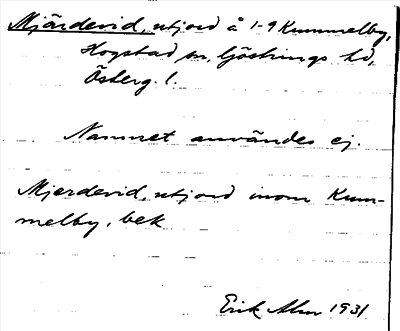 Mjärdevid, utjord å 1-9 Kummelby,
Hogstad sn, Göstrings hd,
Österg. l.
Namnet användes ej.
Mjerdevid, utjord inom Kum-
melby, bek
Erik Alm 1931